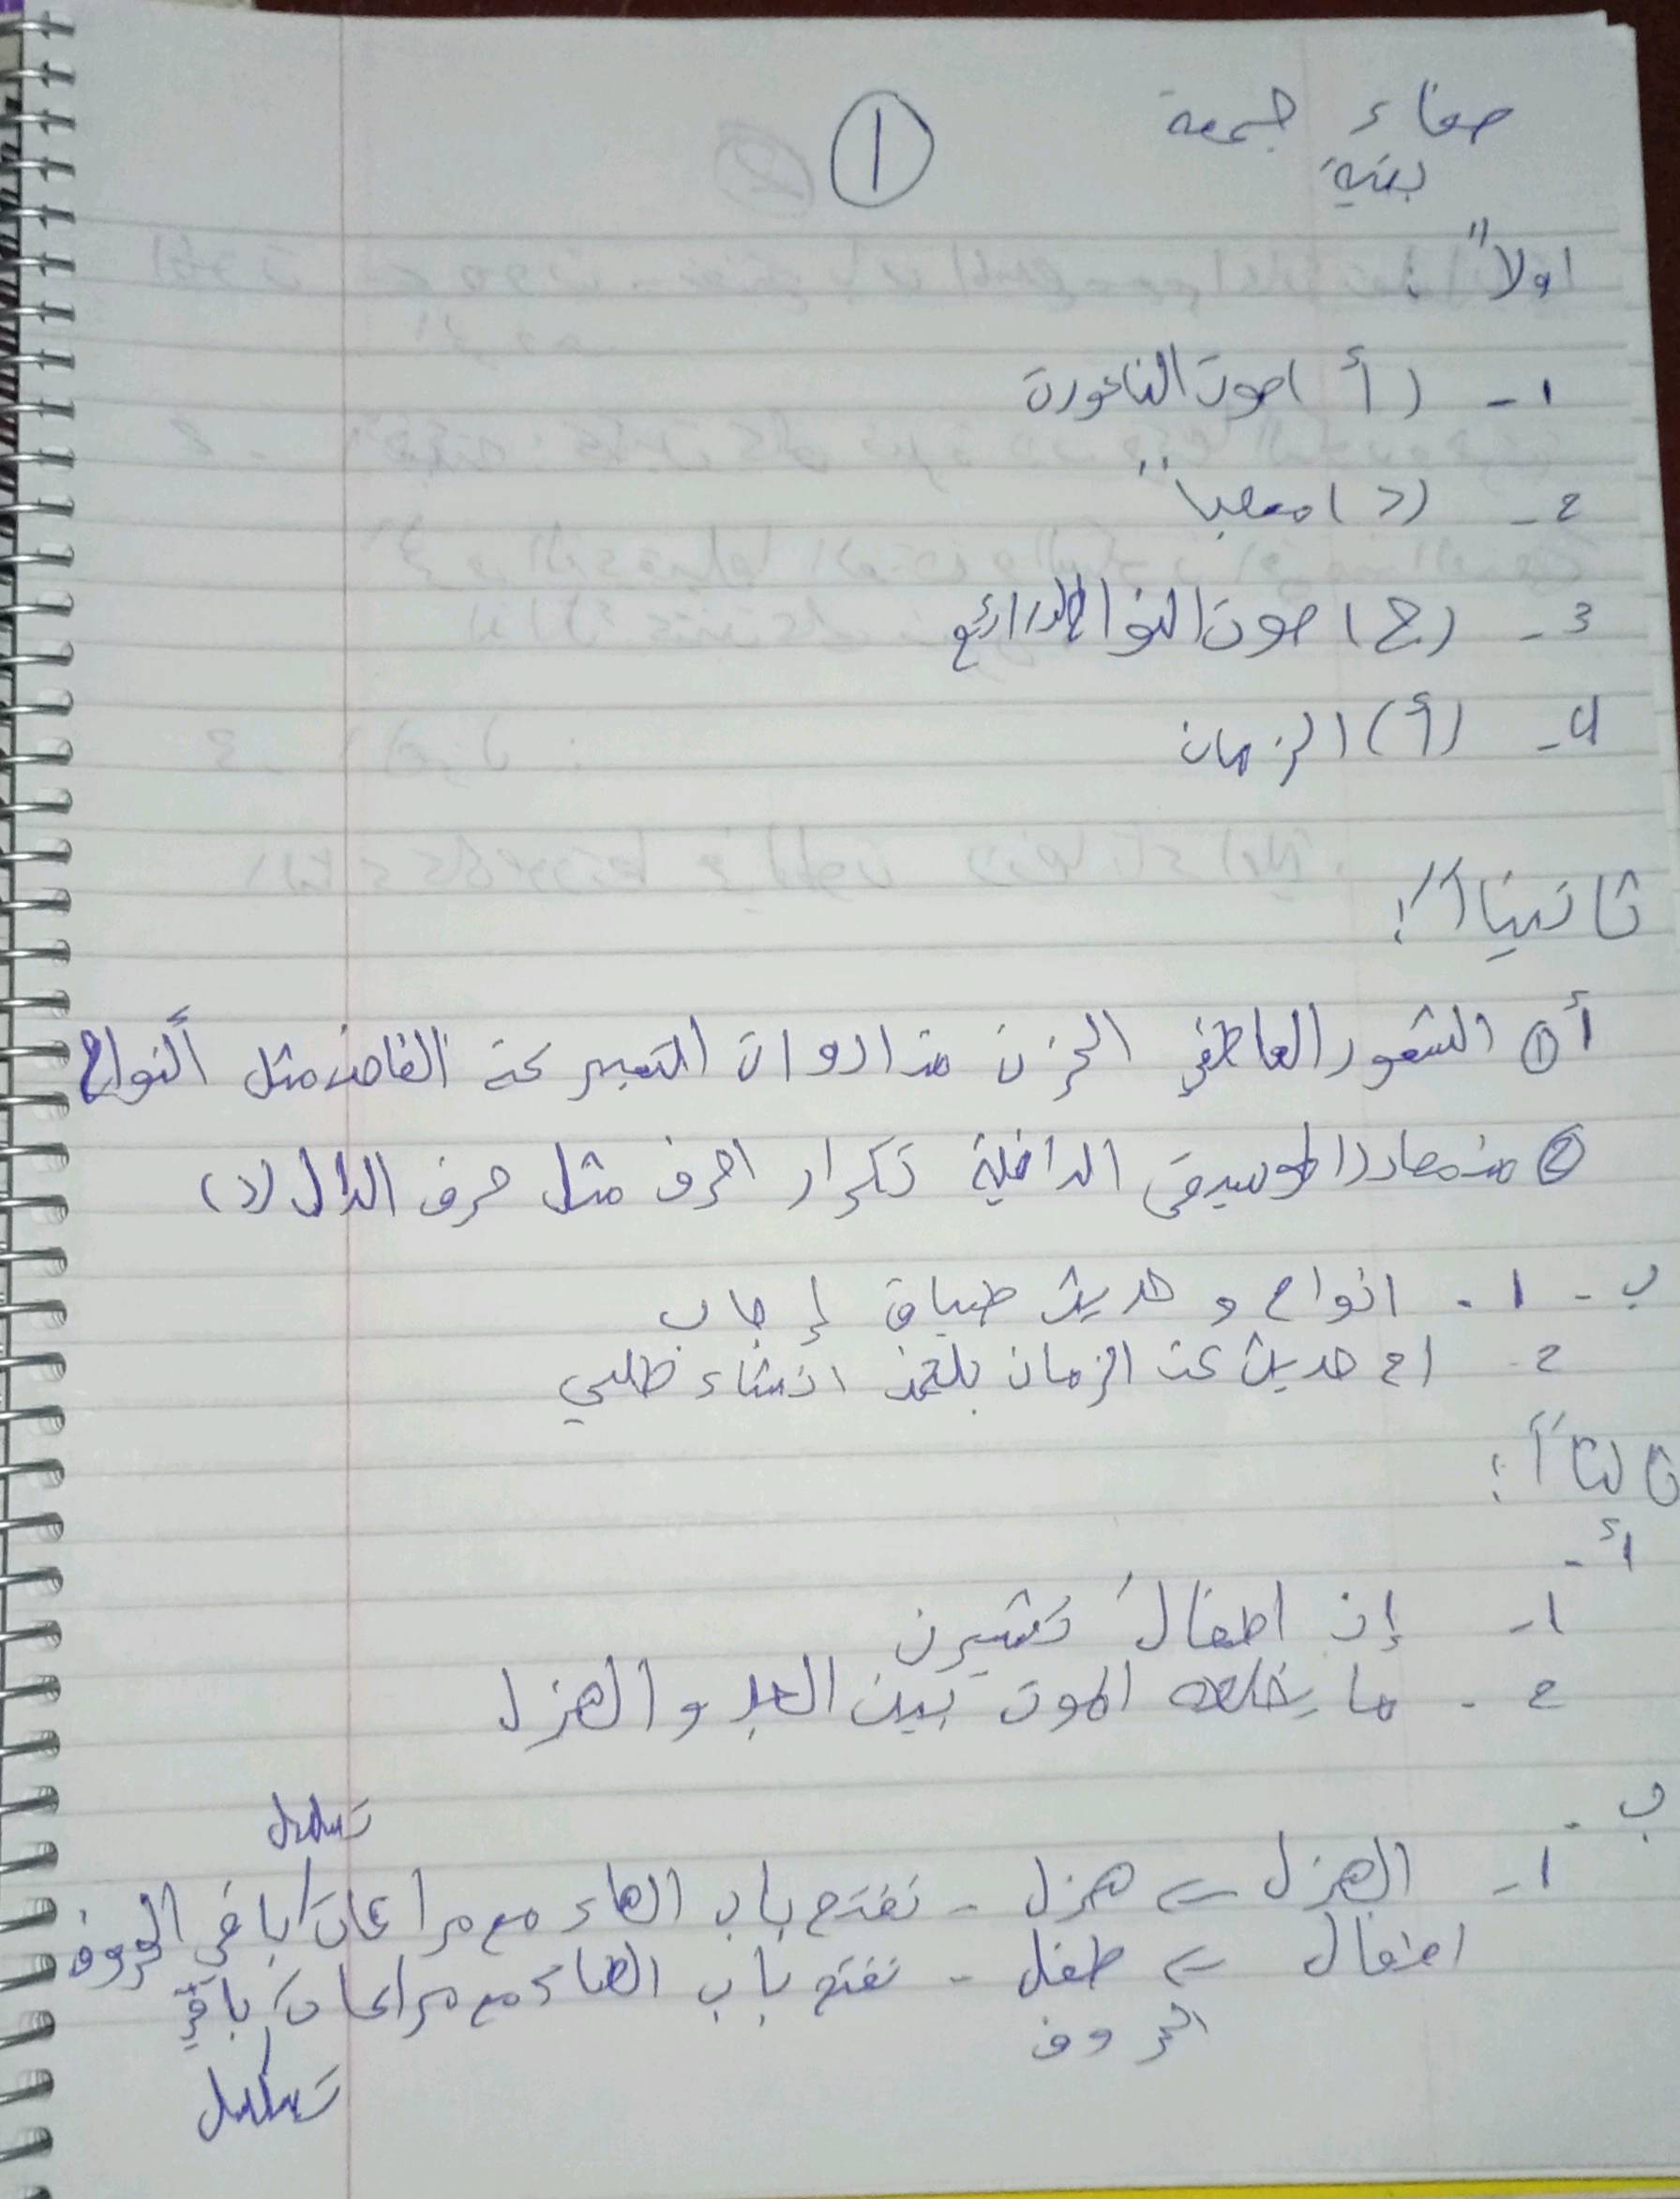 صفاء جمعة
بنية
1
اولاً :
1 - (أ) صوت الناعورة
2 - (د)
3 - (ح) صوت النواح
4 - (أ) الزمان
ثانيااً :
أ 1 الشعور العاطفي الحزن من ادوات التعبير عنه الفاض مثل ألنواح
2 من مصادر الموسيقى الداخلية تكرار احرف مثل حرف الدال (د)
ب - 1 . انواح و حديث طباق إجاب
2 - اح حديث عن الزمان انشاء طلبي
ثالثاً :
أ -
1 - إن اطفالَ تشرين
2 - ما الموت بين الجد و الهزل
ب -
تسلسل
1 - الهزل ← هزل - نفتح باب الهاء مع مراعات باقي الحروف
اطفال ← طفل - نفتح باب الطاء مع مراعات باقي
الحروف
تسلسل